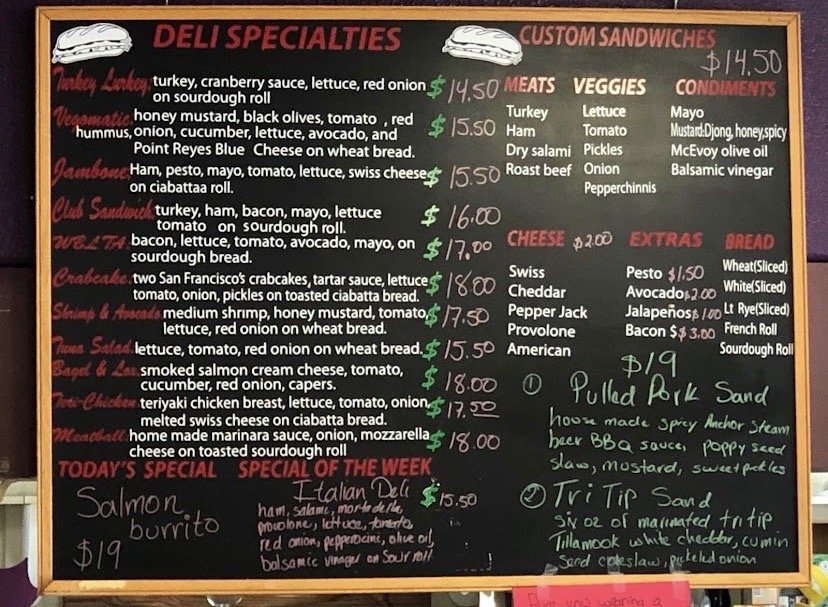 DELI SPECIALTIES
Turkey Lurkey. turkey, cranberry sauce, lettuce, red onion $14.50
on sourdough roll
Vegomatic. honey mustard, black olives, tomato , red
hummus, onion, cucumber, lettuce, avocado, and $15.50
Point Reyes Blue Cheese on wheat bread.
Jambone. Ham, pesto, mayo, tomato, lettuce, swiss cheese $15.50
on ciabattaa roll.
Club Sandwich. turkey, ham, bacon, mayo, lettuce $16.00
tomato on sourdough roll.
WBLTA. bacon, lettuce, tomato, avocado, mayo, on $17.00
sourdough bread.
Crabcake. two San Francisco's crabcakes, tartar sauce, lettuce $18.00
tomato, onion, pickles on toasted ciabatta bread.
Shrimp & Avocado medium shrimp, honey mustard, tomato, $17.50
lettuce, red onion on wheat bread.
Tuna Salad. lettuce, tomato, red onion on wheat bread. $15.50
Bagel & Lox. smoked salmon cream cheese, tomato, $18.00
cucumber, red onion, capers.
Teri-Chicken. teriyaki chicken breast, lettuce, tomato, onion, $17.50
melted swiss cheese on ciabatta bread.
Meatball. home made marinara sauce, onion, mozzarella $18.00
cheese on toasted sourdough roll
TODAY'S SPECIAL
Salmon
burrito
$19
SPECIAL OF THE WEEK
Italian Deli $15.50
ham, salami, mortadella,
provolone, lettuce, tomato,
red onion, pepperocini, olive oil,
balsamic vinager on Sour roll
CUSTOM SANDWICHES
$14.50
MEATS
Turkey
Ham
Dry salami
Roast beef
VEGGIES
Lettuce
Tomato
Pickles
Onion
Pepperchinnis
CONDIMENTS
Mayo
Mustard:Djong, honey,spicy
McEvoy olive oil
Balsamic vinegar
CHEESE $2.00
Swiss
Cheddar
Pepper Jack
Provolone
American
EXTRAS
Pesto $1.50
Avocado $2.00
Jalapeños $1.00
Bacon $$3.00
BREAD
Wheat(Sliced)
White(Sliced)
Lt Rye(Sliced)
French Roll
Sourdough Roll
$19
① Pulled Pork Sand
house made spicy Anchor Steam
beer BBQ sauce, poppy seed
slaw, mostard, sweet pickles
② Tri Tip Sand
Six oz of marinated tri tip
Tillamook white cheddar, cumin
Seed coleslaw, pickeled onion
Are you wearing a